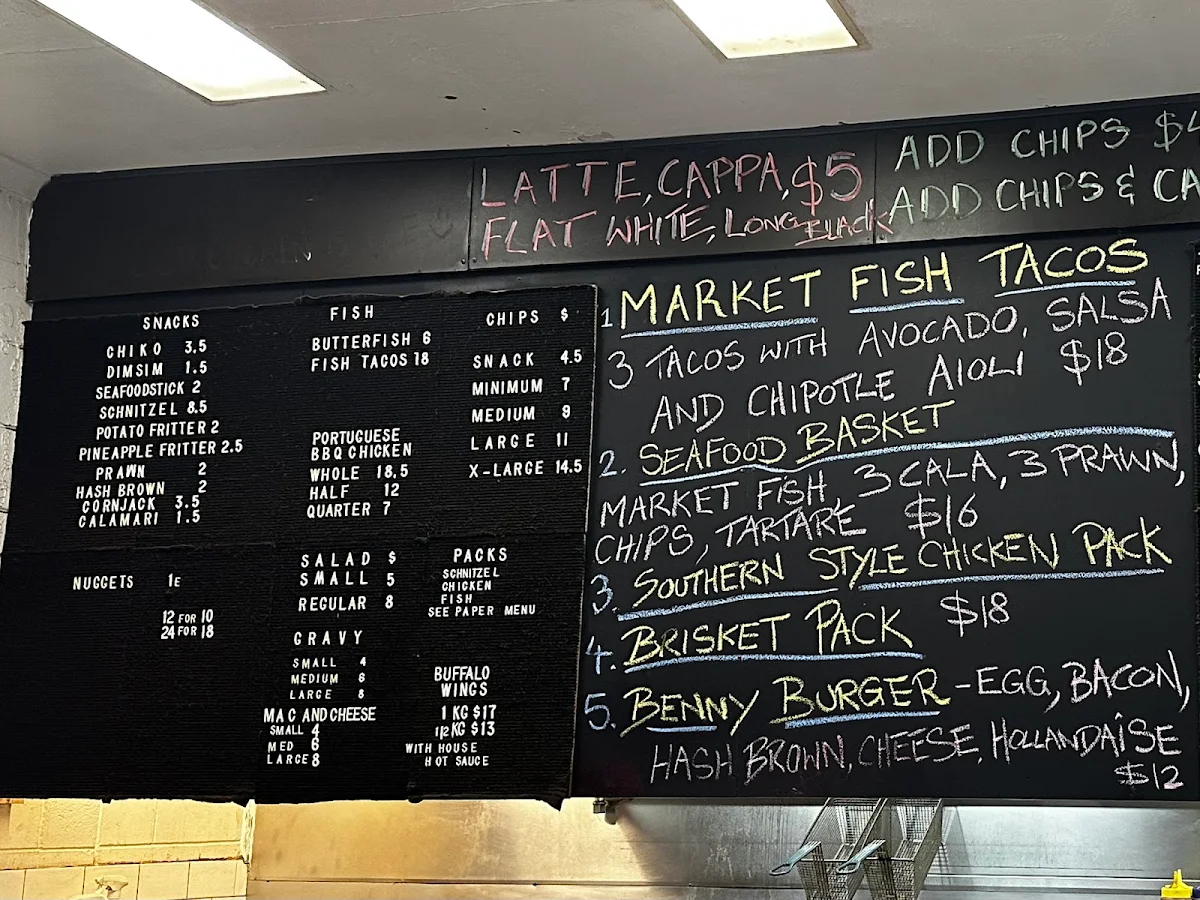 LATTE, CAPPA, $5
FLAT WHITE, LONG BLACK
ADD CHIPS $4
ADD CHIPS & CA
SNACKS
CHIKO 3.5
DIMSIM 1.5
SEAFOODSTICK 2
SCHNITZEL 8.5
POTATO FRITTER 2
PINEAPPLE FRITTER 2.5
PRAWN 2
HASH BROWN 2
CORNJACK 3.5
CALAMARI 1.5
NUGGETS 1E
12 FOR 10
24 FOR 18
FISH
BUTTERFISH 6
FISH TACOS 18
PORTUGUESE
BBQ CHICKEN
WHOLE 18.5
HALF 12
QUARTER 7
CHIPS $
SNACK 4.5
MINIMUM 7
MEDIUM 9
LARGE 11
X-LARGE 14.5
SALAD $
SMALL 5
REGULAR 8
GRAVY
SMALL 4
MEDIUM 6
LARGE 8
MAC AND CHEESE
SMALL 4
MED 6
LARGE 8
PACKS
SCHNITZEL
CHICKEN
FISH
SEE PAPER MENU
BUFFALO
WINGS
1 KG $17
1/2 KG $13
WITH HOUSE
HOT SAUCE
1 MARKET FISH TACOS
3 TACOS WITH AVOCADO, SALSA
AND CHIPOTLE AIOLI $18
2. SEAFOOD BASKET
MARKET FISH, 3 CALA, 3 PRAWN,
CHIPS, TARTARE $16
3. SOUTHERN STYLE CHICKEN PACK
4. BRISKET PACK $18
5. BENNY BURGER - EGG, BACON,
HASH BROWN, CHEESE, HOLLANDAISE
$12